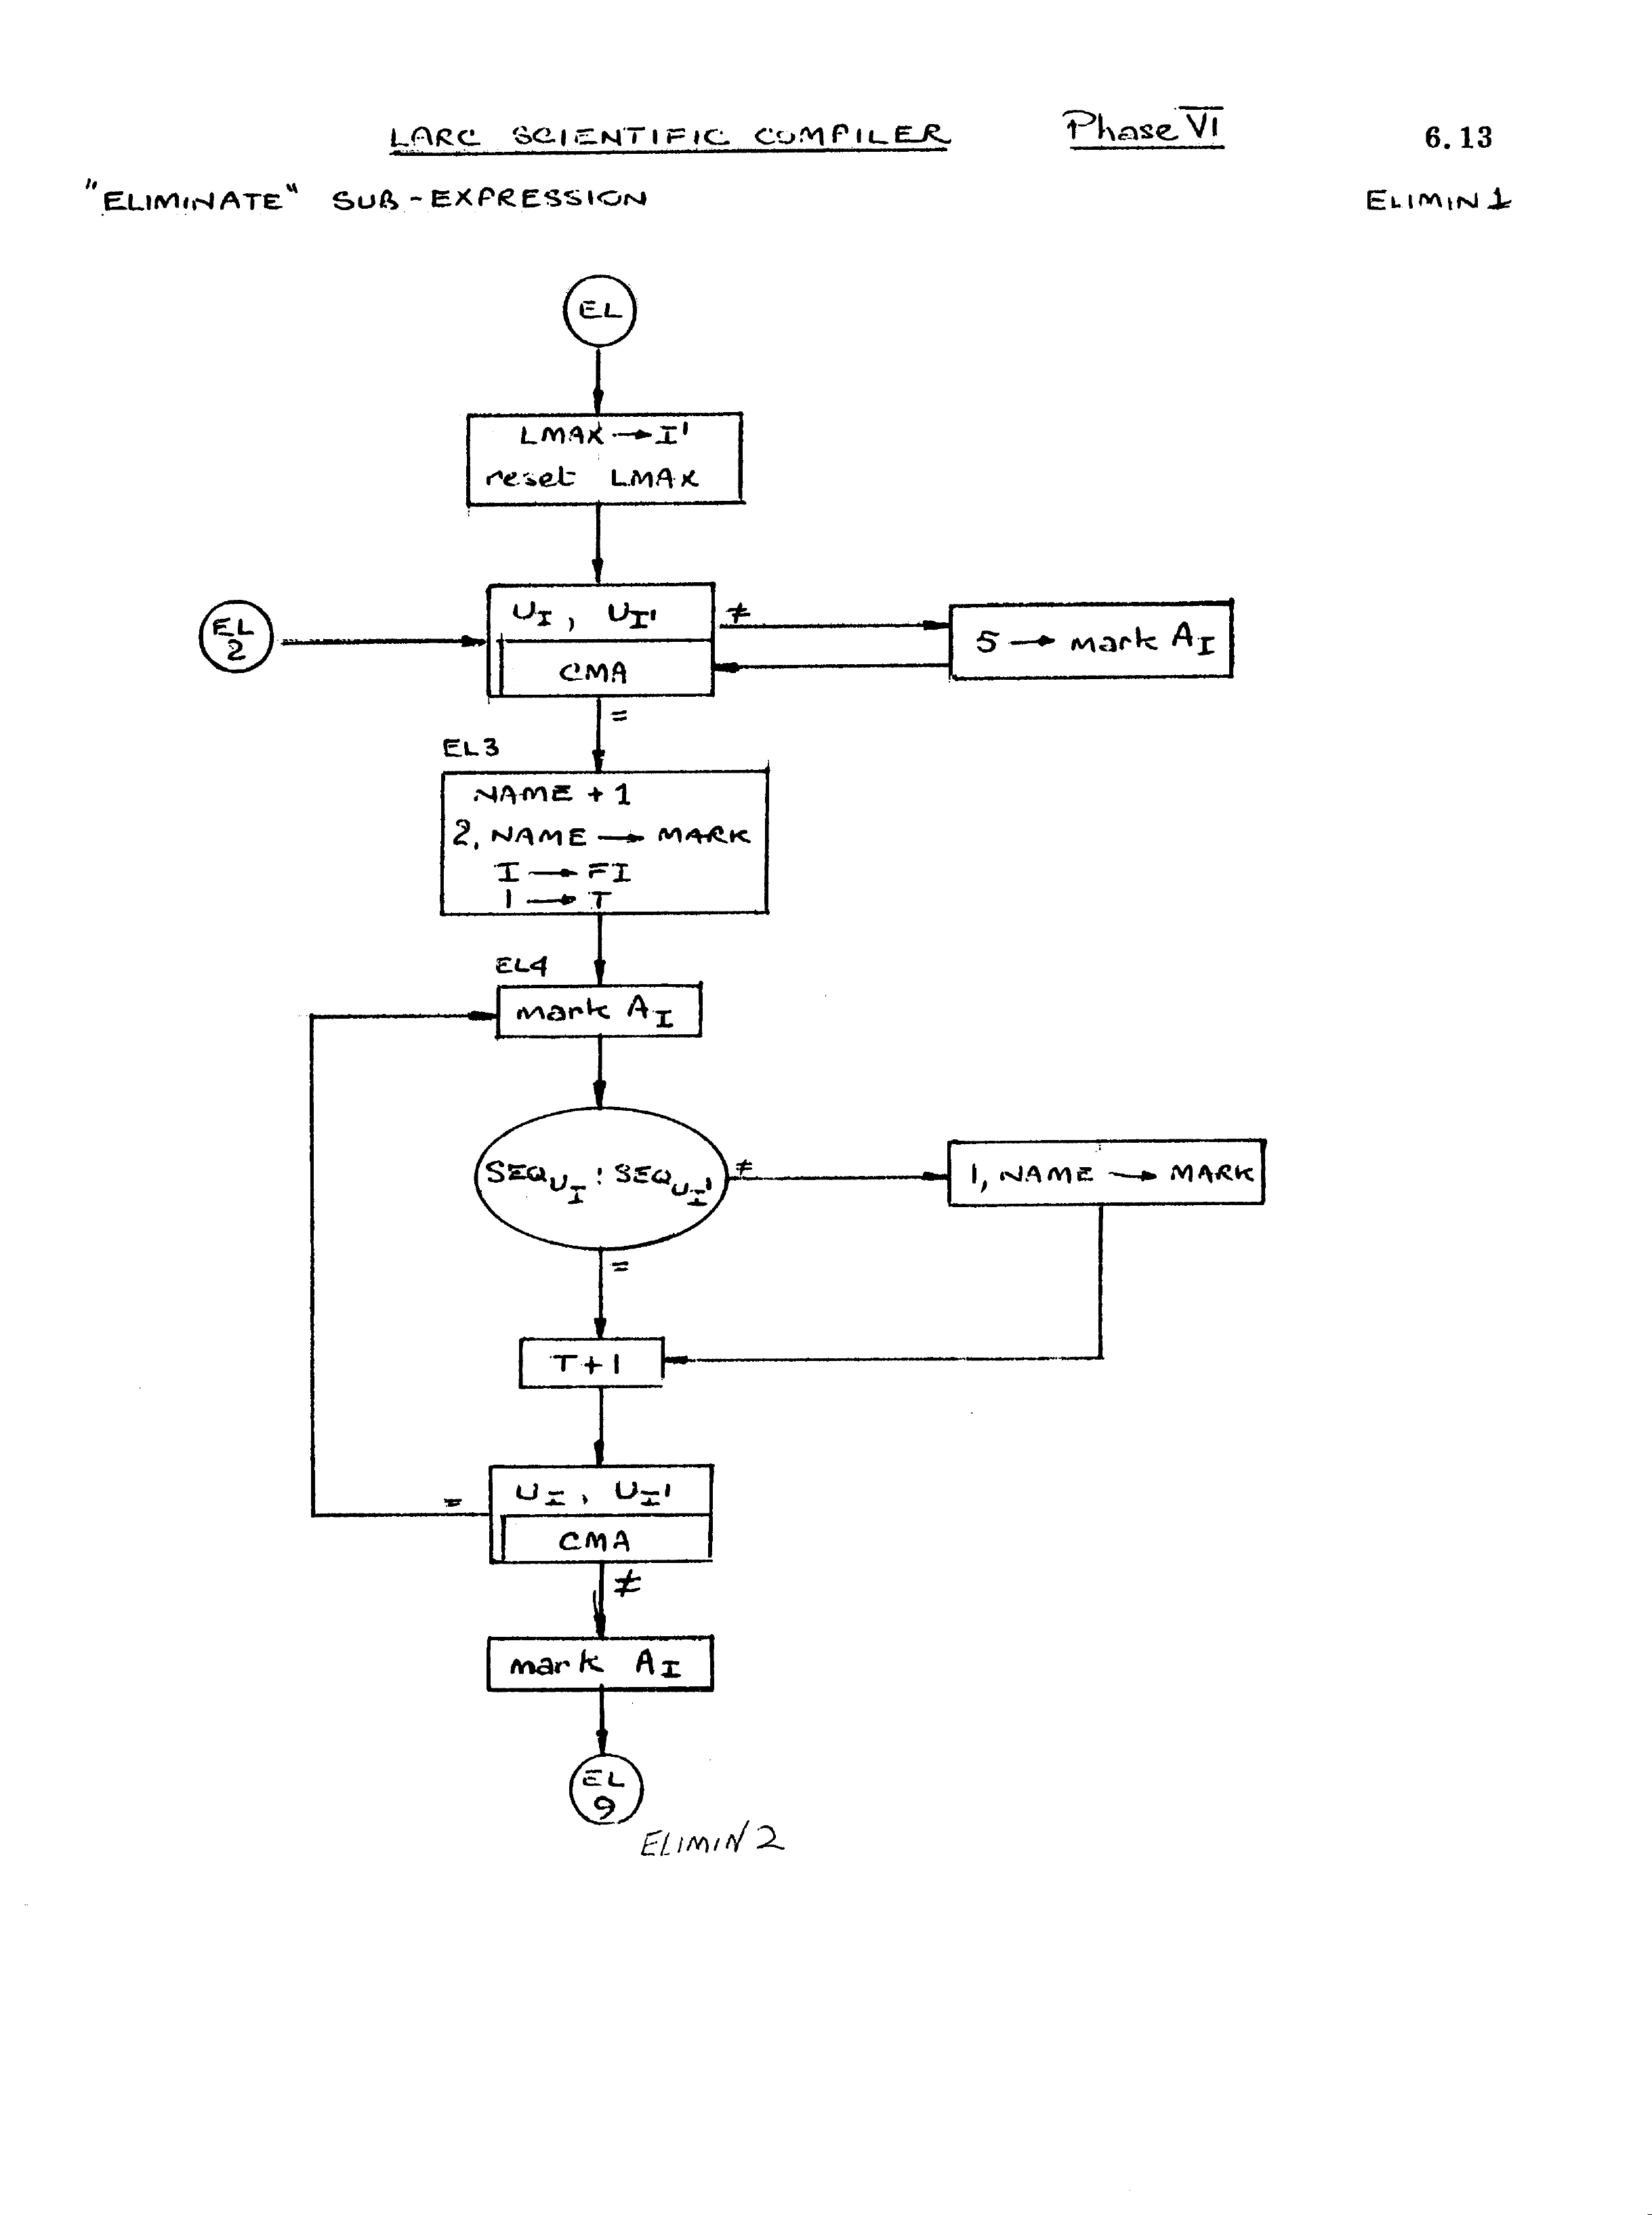 LARC SCIENTIFIC COMPILER Phase VI 6.13
"ELIMINATE" SUB-EXPRESSION ELIMIN 1
EL
LMAX → I'
reset LMAX
EL
2
U_I, U_I'
CMA
≠
5 → mark A_I
=
EL3
NAME + 1
2, NAME → MARK
I → FI
1 → T
EL4
mark A_I
SEQ_U_I : SEQ_U_I'
≠
1, NAME → MARK
=
T+1
U_I, U_I'
CMA
=
≠
mark A_I
EL
9
ELIMIN 2